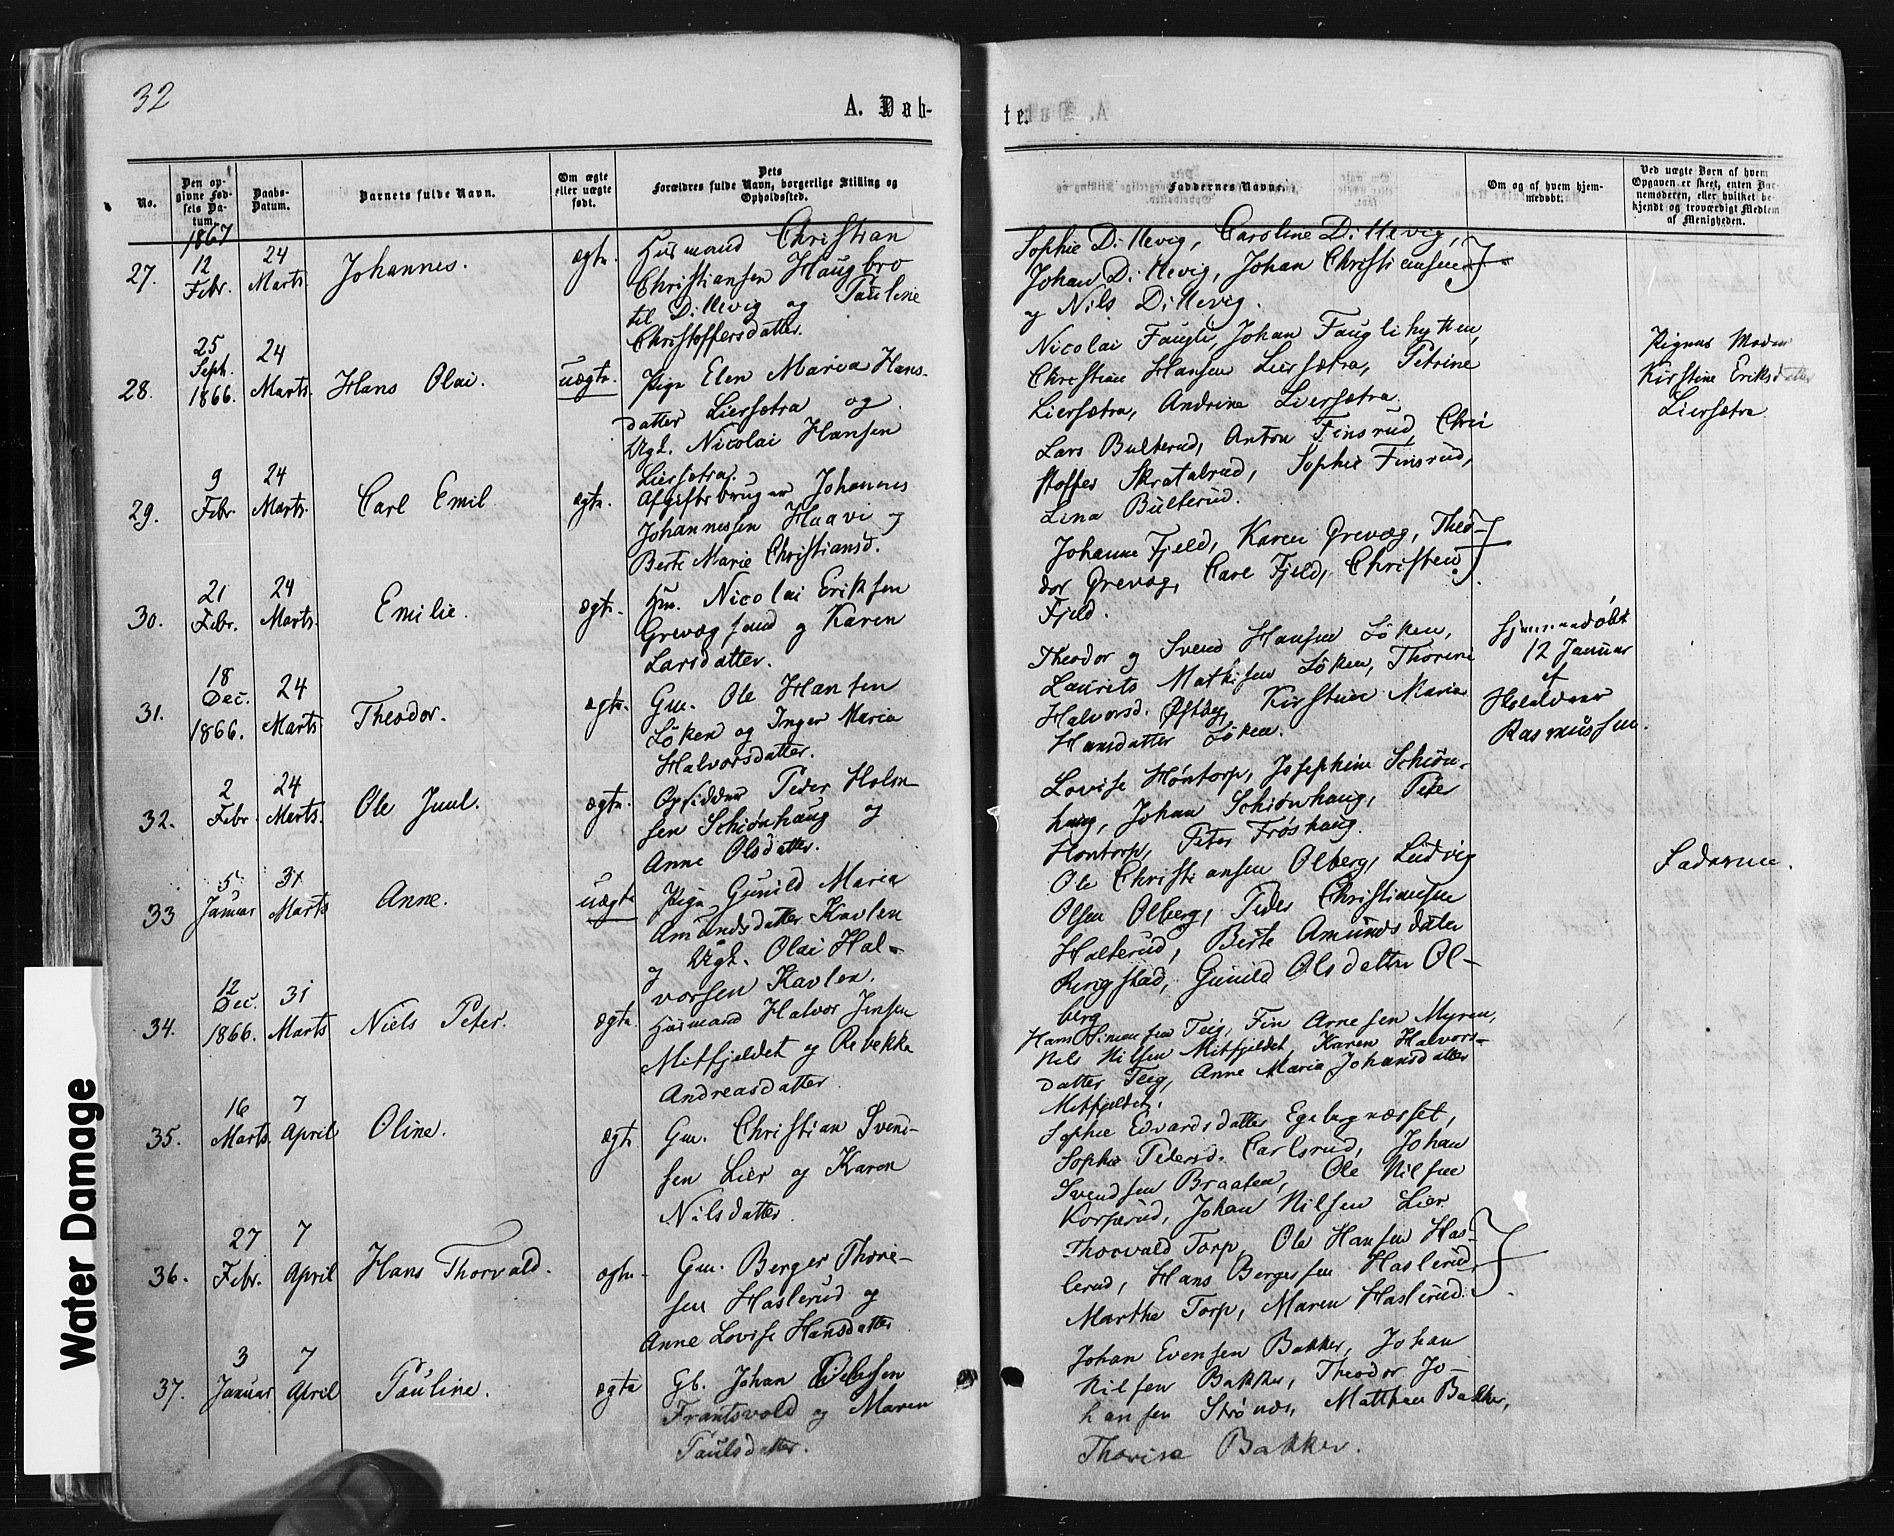 32
A. Dab-
te.
No.
Den op-
givne Fød-
sels Da-
tum.
Daabs-
Datum.
Barnets fulde Navn.
Om ægte
eller uægte
født.
Dets
Forældres fulde Navn, borgerlige Stilling og
Opholdssted.
Faddernes Navne.
Om og af hvem hjem-
medøbt.
Ved uægte Børn af hvem
Opgaven er skeet, enten Bar-
nemoderen, eller hvilket be-
kjendt og troværdigt Medlem
af Menigheden.
1867
27.
12
Febr.
24
Marts.
Johannes.
ægte.
Husmand Christian
Christiansen Haugbro
til Dillevig og Pauline
Christoffersdatter.
Sophie Dillevig, Caroline Dillevig,
Johan Dillevig, Johan Christiansen
og Nils Dillevig.
28.
25
Sept.
1866.
24
Marts.
Hans Olai.
uægte.
Pige Elen Maria Hans-
datter Liersætra og
Ugk. Nicolai Hansen
Liersætra.
Nicolai Faugli, Johan Fauglihytten,
Christian Hansen Liersætra, Petrine
Liersætra, Andrine Liersætra.
Pigens Moder
Kirstine Eriksdatter
Liersætra.
29.
9
Febr.
24
Marts.
Carl Emil
ægte.
Afgiftsbruger Johannes
Johannessen Haavi og
Berte Marie Christiansd.
Lars Bulterud, Anton Finsrud, Chri
stoffer Skratalrud, Sophie Finsrud,
Lina Bulterud.
30.
21
Febr.
24
Marts.
Emilie.
ægte.
Hm. Nicolai Eriksen
Grevægsund og Karen
Larsdatter.
Johanne Fjeld, Karen Grevæg, Theo-
dor Grevæg, Carl Fjeld, Christen
Fjeld.
31.
18
Dec.
1866.
24
Marts
Theodor.
ægte.
Gm. Ole Hansen
Løken og Inger Maria
Halvorsdatter.
Theodor og Svend Hansen Løken,
Laurits Mathisen Løken, Thorine
Halvorsd. Østby, Kirstine Maria
Hansdatter Løken.
Hjemmedøbt
12 Januar
af
Halvor
Rasmussen.
32.
2
Febr.
24
Marts.
Ole Juul.
ægte.
Opsidder Peder Holm-
sen Schiønhaug og
Anne Olsdatter.
Lovise Høntorp, Josephine Schiøn-
haug, Johan Schiønhaug, Peter
Høntorp, Peter Frøshaug.
33
5
Januar
31
Marts
Anne.
uægte
Pige Gunild Maria
Amundsdatter Kavlen
og Ugk. Olai Hal-
vorsen Kavlen.
Ole Christiansen Olberg, Ludvig
Olsen Olberg, Peder Christiansen
Halterud, Berte Amundsdater
Ringstad, Gunild Olsdatter Ol-
berg
Faderen.
34.
12
Dec.
1866.
31
Marts
Niels Peter.
ægte.
Husmand Halvor Jensen
Mitfjeldet og Rebekka
Andreasdatter.
Hans Simensen Teig, Fin Arnesen Myren,
Nils Nilsen Mitfjeldet, Karen Halvors-
datter Teig, Anne Maria Johansdatter
Mitfjeldet.
35.
16
Marts.
7
April
Oline.
ægte
Gm. Christian Svend-
sen Lier og Karen
Nilsdatter.
Sophie Edvardsdatter Egebergnæsset,
Sophie Pedersd. Carlsrud, Johan
Svendsen Braaten, Ole Nilsen
Korperud, Johan Nilsen Lier
36.
27
Febr.
7
April
Hans Thorvald.
ægte.
Gm. Berger Thore-
sen Haslerud og
Anne Lovise Hansdatter
Thorvald Torp, Ole Hansen Has-
lerud, Hans Bergersen Haslerud,
Marthe Torp, Maren Haslerud.
37.
3
Januar
7
April
Pauline.
ægte
Gb. Johan
Frantsvold og Maren
Paulsdatter.
Johan Evensen Bakker, Johan
Nilsen Bakker, Theodor Jo-
hansen Strønes, Matthea Bakker,
Thorine Bakker.
Water Damage